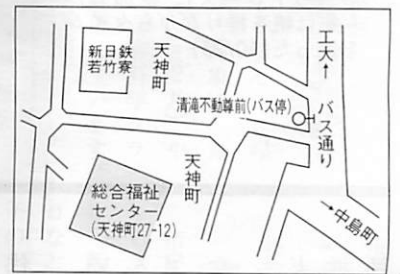 新日鉄
若竹寮
天神町
工大↑
清滝不動尊前(バス停)
バス通り
天神町
総合福祉
センター
(天神町27-12)
→中島町